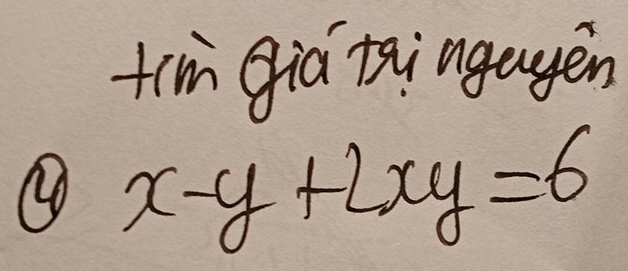 tìm giá trị nguyên
④ x - y + 2xy = 6